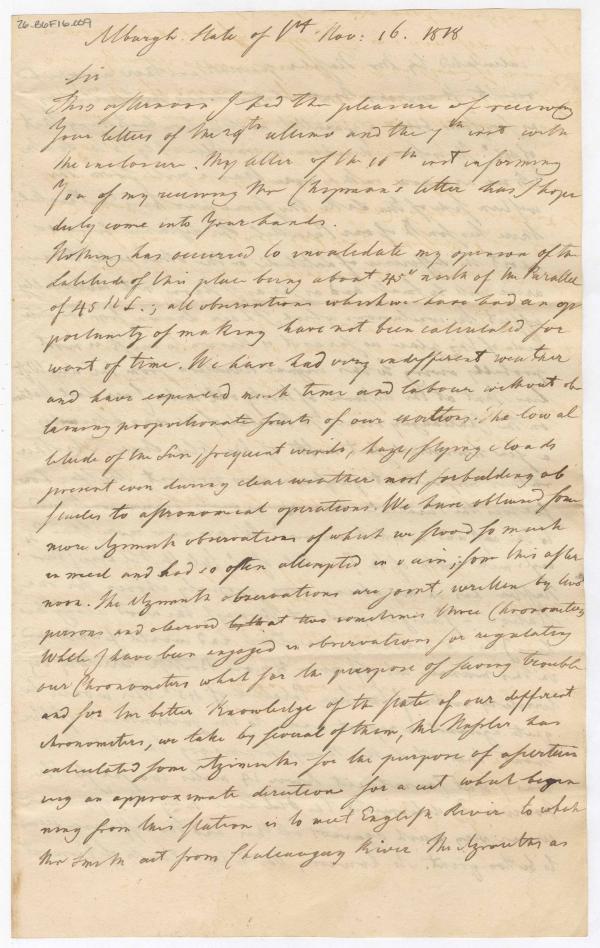 26.B6F16.009
Alburgh State of Vt. Nov: 16. 1818
Sir
This afternoon I had the pleasure of receiving
Your letters of the 29th ultimo and the 7th inst with
the inclosure. My letter of the 10th inst informing
You of my receiving Mr Chipmann's letter has I hope
duly come into Your hands.
Nothing has occurred to invalidate my opinion of the
Latitude of this place being about 45" north of the Parallel
of 45 N L.; all observations which we have had an op
portunity of making have not been calculated for
want of time. We have had very indifferent weather
and have expended much time and labour without ob
taining proportionate fruits of our exertions. The low al
titude of the Sun, frequent winds, haze, flying clouds
present even during clear weather most forbidding ob
stacles to astronomical operations. We have obtained some
more Azimuth observations of what we stood so much
in need and had so often attempted in vain; some this after
noon. The Azimuth observations are joint, written by two
persons and observed by two sometimes three Chronometers
While I have been engaged in observations for regulating
our Chronometers what for the purpose of saving trouble
and for the better Knowledge of the state of our different
chronometers, we take by several of them, Mr Hassler has
calculated some Azimuths for the purpose of ascertain
ing an approximate direction for a cut what begin
ning from this station is to meet English River to which
Mr Smith cut from Chateaugay River The Azimuths as